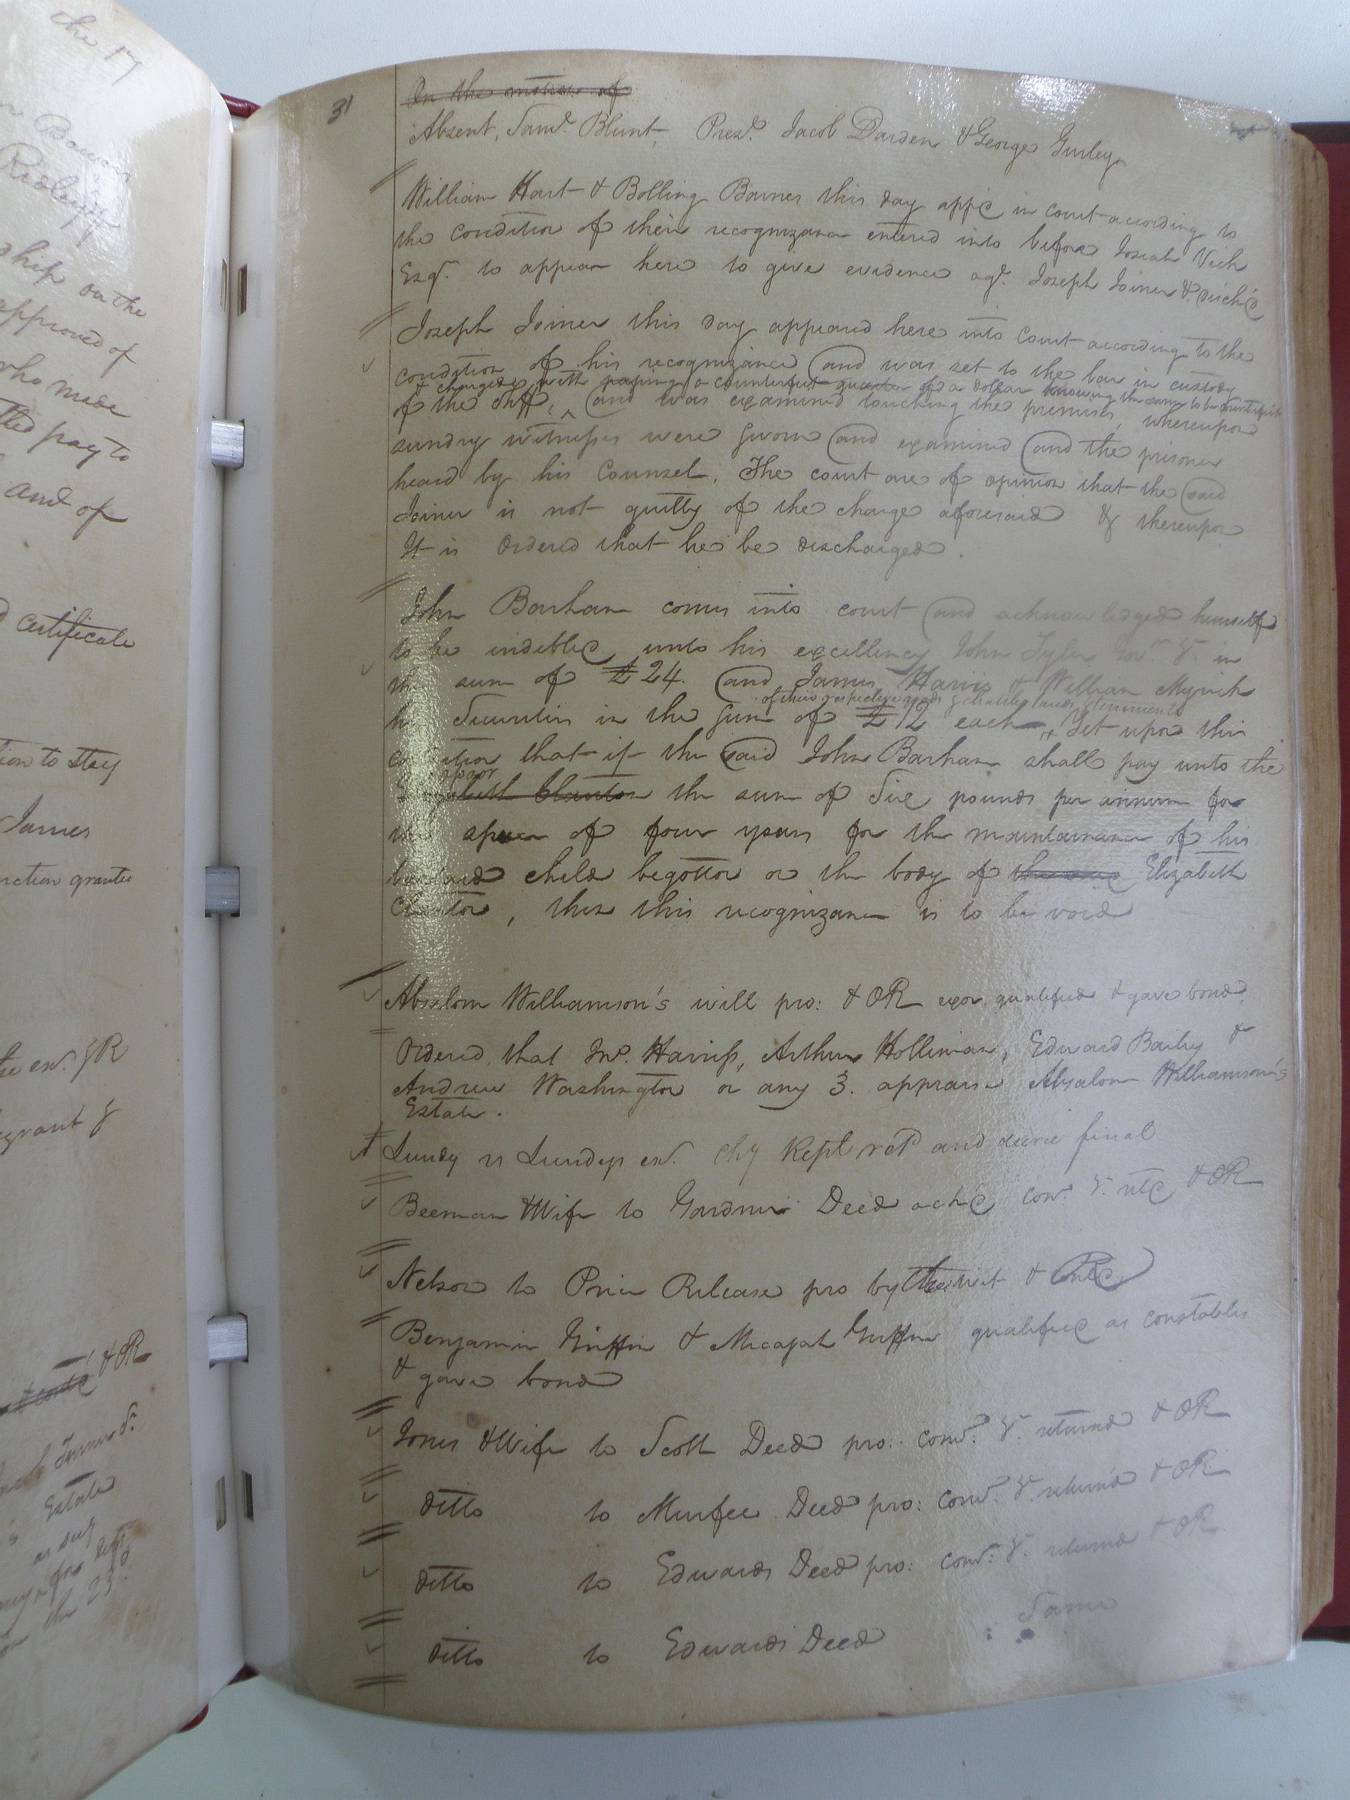 che 17
Ridley
ship on the
approved of
who made
pay to
and of
certificate
tion to stay
James
nction granted
grant &
& OR
Estate
as such
the 23d.
31
In the motion of
Absent, Saml. Blunt, Prest. Jacob Darden & George Gurley
William Hart & Bolling Barnes this day app'd in court according to
the condition of their recognizance entered into before Josiah Vick
Esqr. to appear here to give evidence agt. Joseph Joiner & disch'd
Joseph Joiner this day appeared here into Court according to the
condition of his recognizance and was set to the bar in custody
& charged with passing a counterfeit quarter of a dollar knowing the same to be counterfeit
of the shff, ^ and was examined touching the premises, whereupon
sundry witnesses were sworn and examined and the prisoner
heard by his Counsel. The court are of opinion that the said
Joiner is not guilty of the charge aforesaid & thereupon
It is Ordered that he be discharged.
John Barham comes into court and acknowledged himself
to be indebted unto his excellency John Tyler Gor. &. in
the sum of £24. and James Harris & William Myrick
of their respective goods & chattles lands & tenements
his Securities in the sum of £12 each, ^ Yet upon this
condition that if the said John Barham shall pay unto the
poor
Elizabeth Clanton the sum of Six pounds per annum for
the space of four years for the maintainance of his
bastard child begotton on the body of the said Elizabeth
Clanton, then this recognizance is to be void
Absalom Williamson's will pro: & OR exor qualified & gave bond.
Ordered that Jno. Harriss, Arthur Holliman, Edward Bailey &
Andrew Washington or any 3. appraise Absalom Williamson's
Estate.
Lundy vs Lundys exr. Chy Rept retd and decree final
Beeman & Wife to Gardner Deed ack'd com. &. ret'd & OR
Nelson to Price Release pro by the wit & Cont'd
Benjamin Griffin & Micajah Griffin qualified as constables
& gave bond
Jones & Wife to Scott Deed pro: com. &. returned & OR
ditto to Murfee Deed pro: com. &. returnd & OR
ditto to Edwards Deed pro: com. &. returnd & OR
ditto to Edwards Deed Same